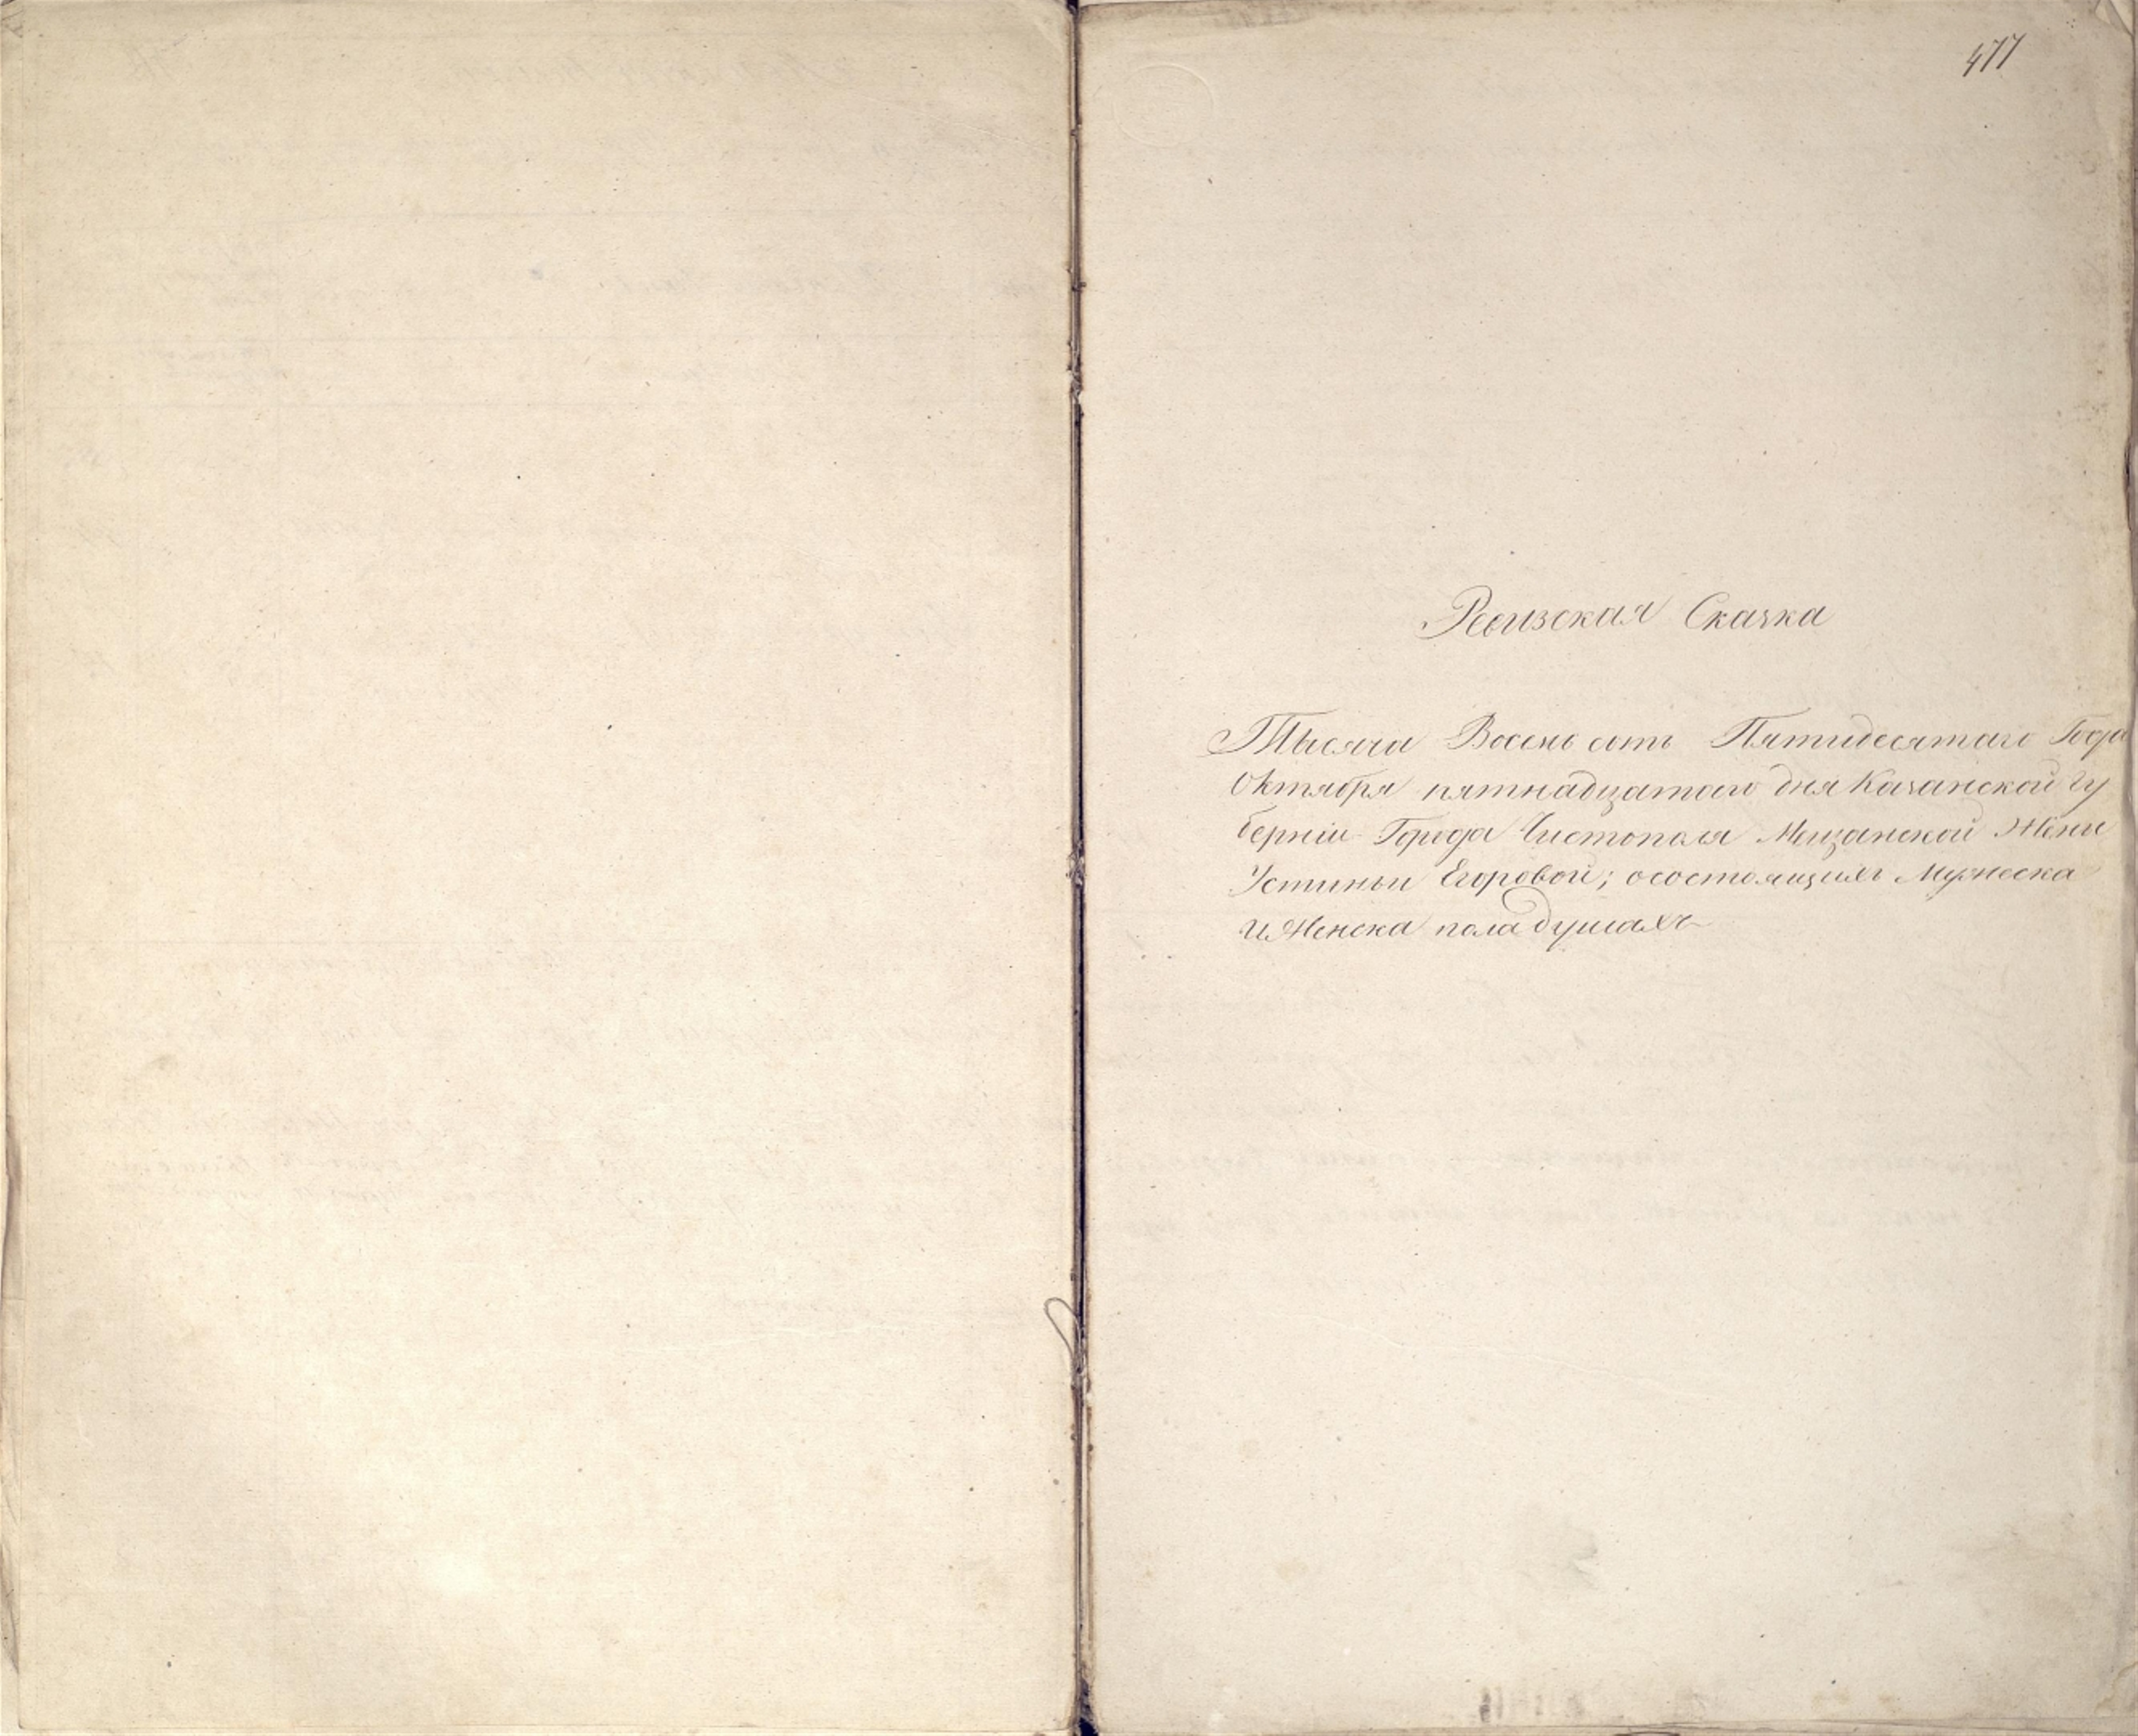 477
Ревизская Сказка
Тысяча Восемь сотъ Пятидесятаго Года
Октября пятнадцатаго дня Казанской гу
берніи Города Чистополя Мещанской Жени
Устиньи Егоровой; о состоящихъ Мужеска
и Женска пола душахъ